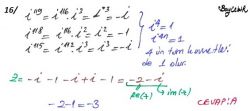 16/ i¹¹⁹ = i¹¹⁶ . i³ = i³ = -i
i¹¹⁸ = i¹¹⁶ . i² = i² = -1
i¹¹⁵ = i¹¹² . i³ = i³ = -i
i⁴ = 1
i⁴ⁿ = 1
4 ün tam kuvvetleri de 1 olur.
z = -i - 1 - i + i - 1 = -2 - i
Re(z) Im(z)
-2 - 1 = -3
CEVAP: A